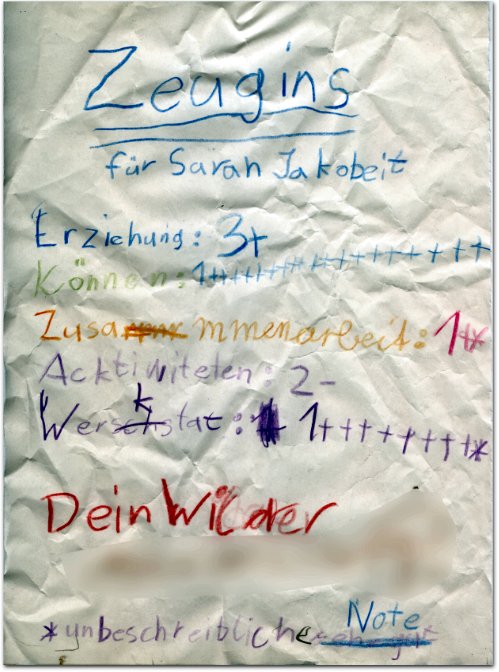 Zeugins
für Sarah Jakobeit
Erziehung: 3+
Können: 1++++++*++++++++++++
Zusammenarbeit: 1+*
Acktiwiteten: 2-
Werkstat: 1++++++++*
Dein Wilder
*unbeschreibliche Note